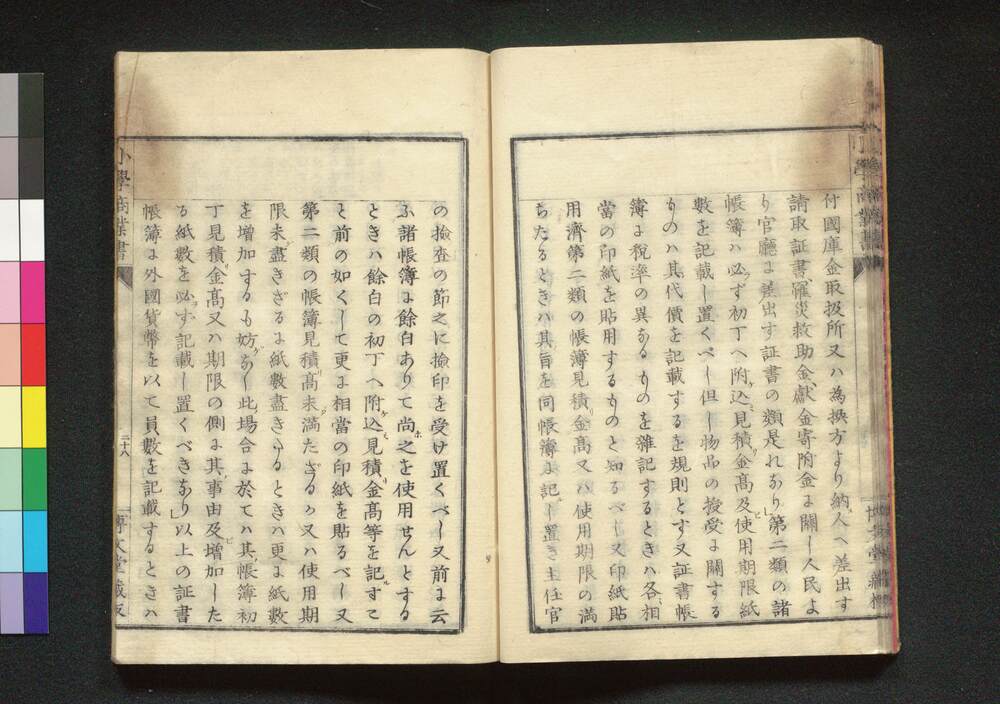 付國庫金取扱所又ハ為換方より納人へ差出す
請取証書罹災救助金獻金寄附金ニ關し人民よ
り官廳ニ差出す証書の類是れあり」第二類の諸
帳簿ハ必ず初丁へ附ケ込ミ見積リ金高及ビ使用期限紙
數を記載し置くべし但し物品の授受ニ關する
ものハ其代價を記載するを規則とす又証書帳
簿ニ税率の異あるものを雜記するときハ各相
當の印紙を貼用するものと知るべし又印紙貼
用濟第二類の帳簿見積リ金高又ハ使用期限の滿
ちたるときハ其旨を同帳簿ニ記し置き主任官
の撿査の節之に撿印を受け置くべし又前ニ云
ふ諸帳簿ニ餘白ありて尚ホ之を使用せんとする
ときハ餘白の初丁へ附ケ込ミ見積リ金高等を記すこ
と前の如くして更ニ相當の印紙を貼るべし又
第二類の帳簿見積リ高未ダ滿たざるか又ハ使用期
限未ダ盡きざるニ紙數盡きたるときハ更ニ紙數
を増加するも妨ゲあし此場合ニ於てハ其帳簿初
丁見積リ金高又ハ期限の側ニ其事由及ビ増加した
る紙數を必ず記載し置くべきあり」以上の証書
帳簿ニ外國貨幣を以て員數を記載するときハ
小學商業書
二十八
博文堂藏版